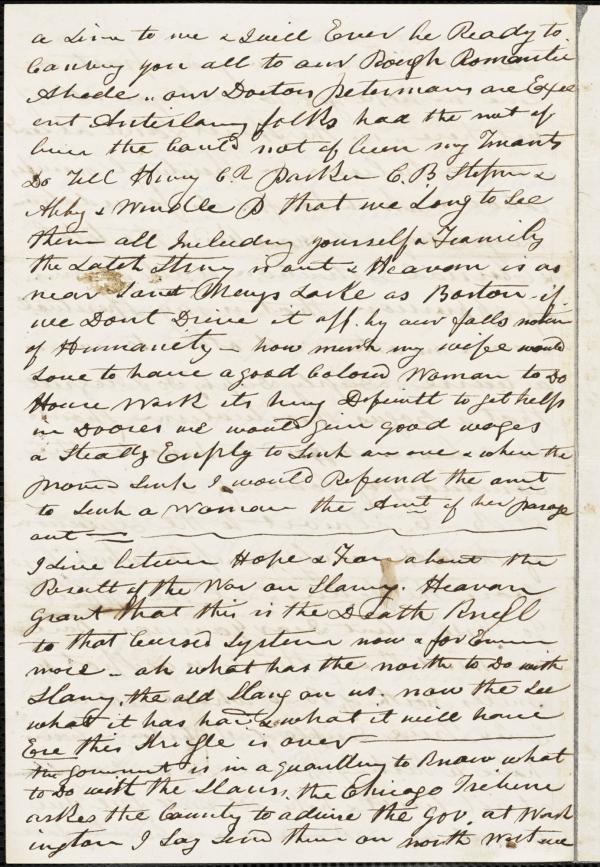 a Line to me & I will Ever be Ready to
Convey you all to our Rough Romantic
Abode .. our Doctor Petermans are Exce
ent Antislavry folks had the not of
been the Could not of been my Tnants
Do Tell Henry C. R Parker C. B &
Abby & Windle P that we Long to See
them all Including yourself & Family
the Latch String is out & Heaven is as
near Saint Marys Lake as Boston if
we Dont Drive it off by our falls notion
of Humanity – how much my wife would
Love to have a good Colord Woman to Do
House Work its very Dificult to get help
in Doores we would give good wages
a Steady Emply to Such an one & when the
Proved Such I would Refund the amt
to Such a Woman the Amt of her passage
out
I Live between Hope & Fear about the
Result of the War on Slavry. Heavan
Grant that this is the Death Knell
to that Cursed System now & for Ever
more – ah what has the north to Do with
Slavry, the old Slang on us. now the See
what it has had & what it will have
Ere this Strugle is over
the Government is in a quandry to Know what
to Do with the Slaves, the Chicago Tribune
askes the County to advise the Gov. at Wash
ington I Say Send them on north West we